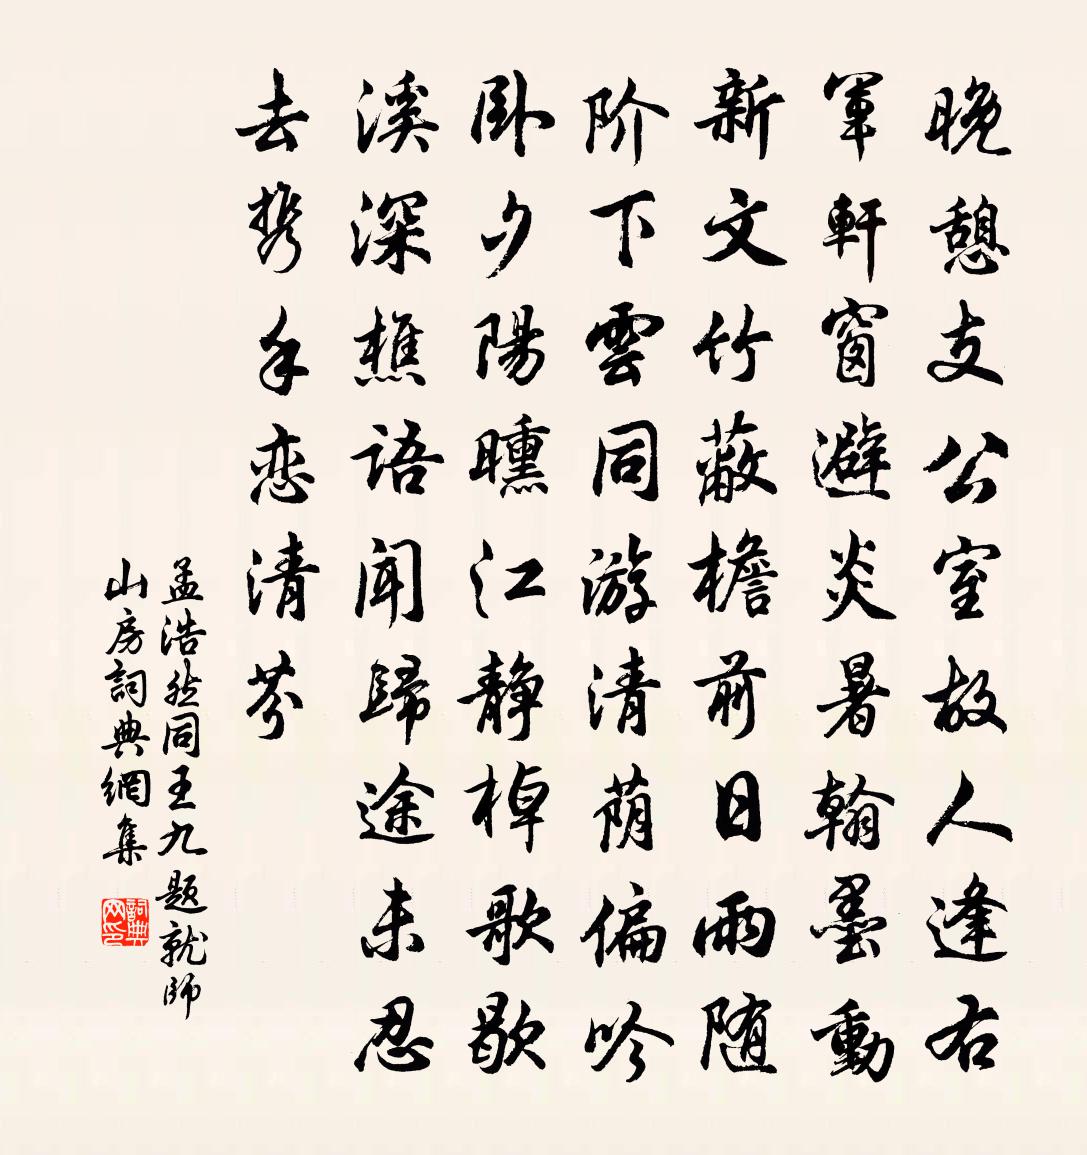 晚憩支公室故人逢右
軍軒窗避炎暑翰墨動
新文竹蔽檐前日雨随
阶下雲同游清荫偏吟
卧夕陽曛江静棹歌歇
溪深樵語闻歸途未忍
去携手恋清芬
孟浩然同王九题就師
山房詞典網集
詞典
网印